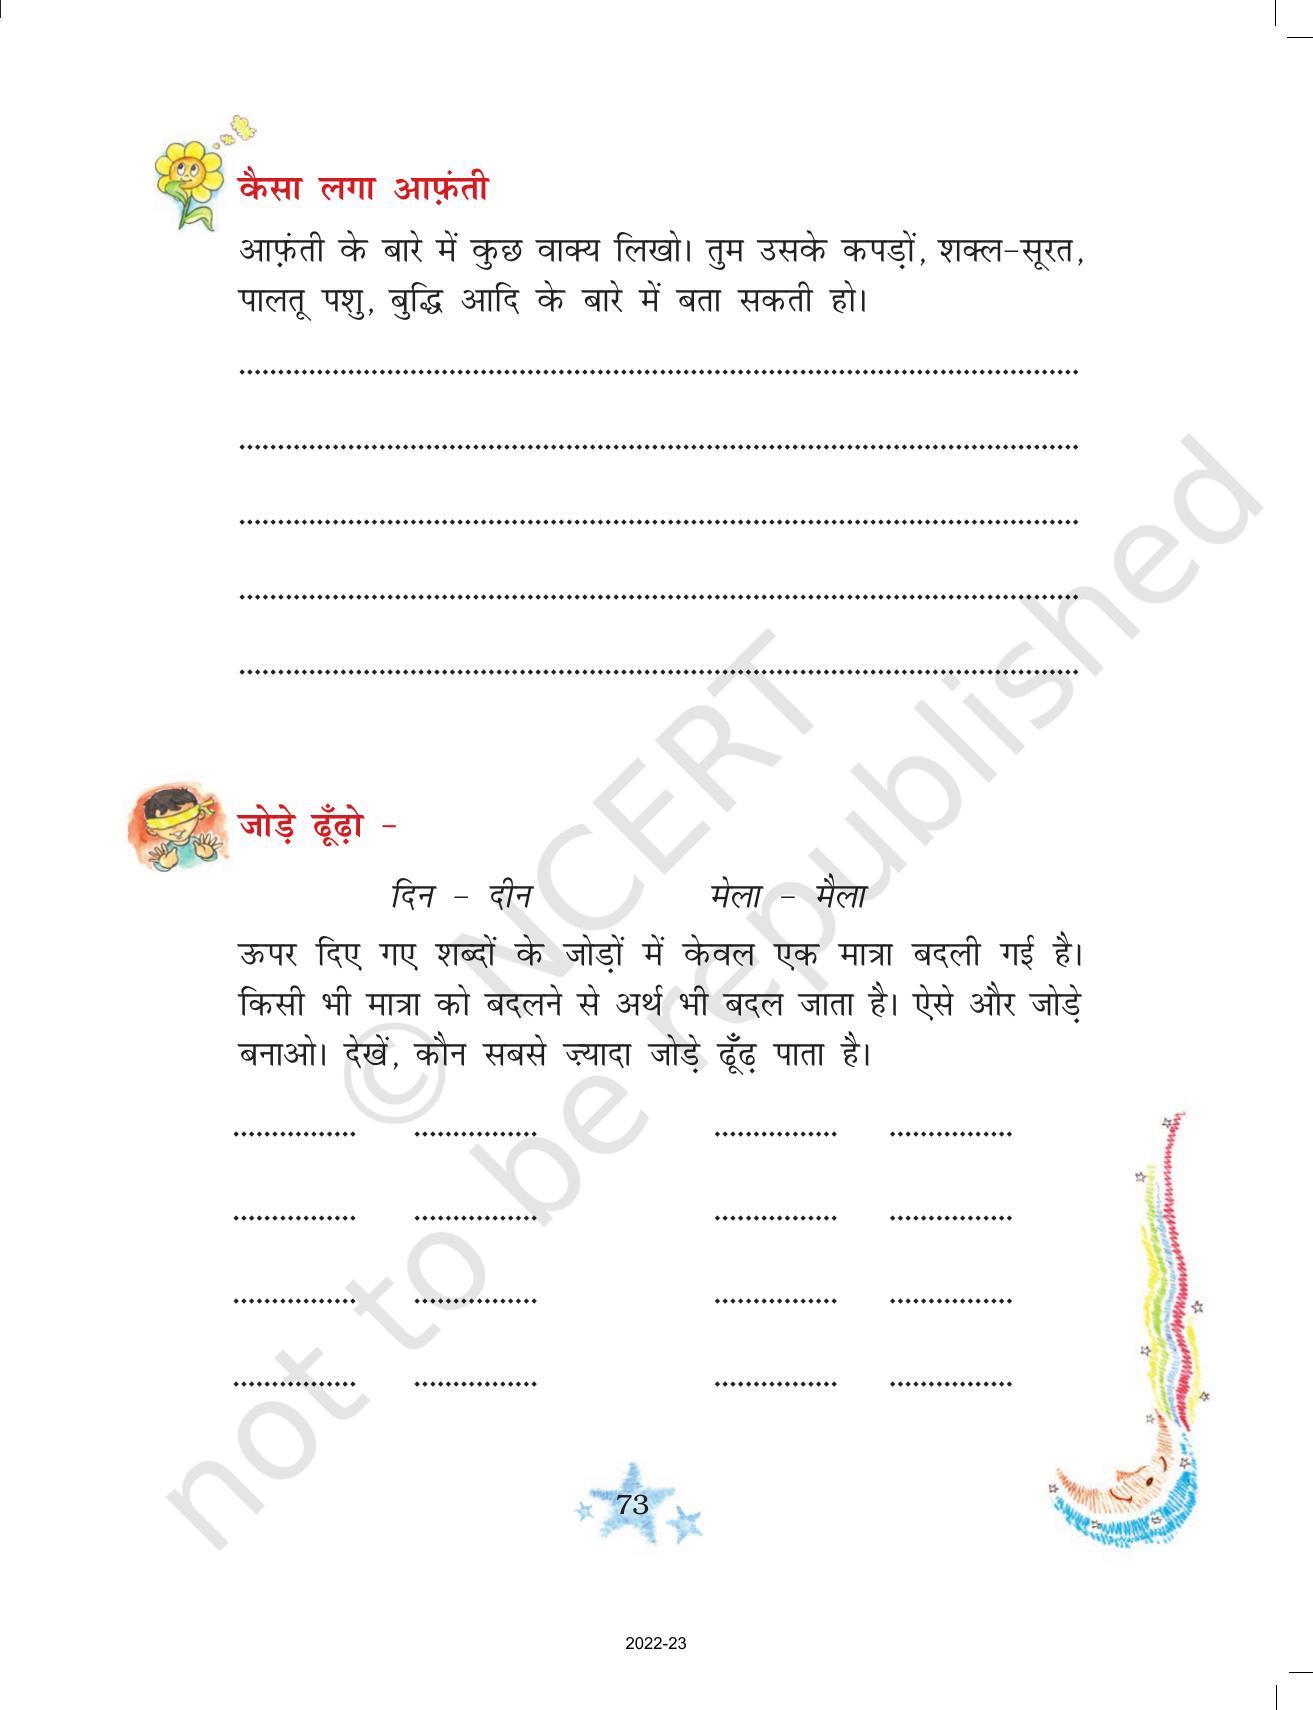 कैसा लगा आफ़ंती
आफ़ंती के बारे में कुछ वाक्य लिखो। तुम उसके कपड़ों, शक्ल-सूरत,
पालतू पशु, बुद्धि आदि के बारे में बता सकती हो।
जोड़े ढूँढ़ो -
दिन - दीन मेला - मैला
ऊपर दिए गए शब्दों के जोड़ों में केवल एक मात्रा बदली गई है।
किसी भी मात्रा को बदलने से अर्थ भी बदल जाता है। ऐसे और जोड़े
बनाओ। देखें, कौन सबसे ज़्यादा जोड़े ढूँढ़ पाता है।
© NCERT
not to be republished
73
2022-23